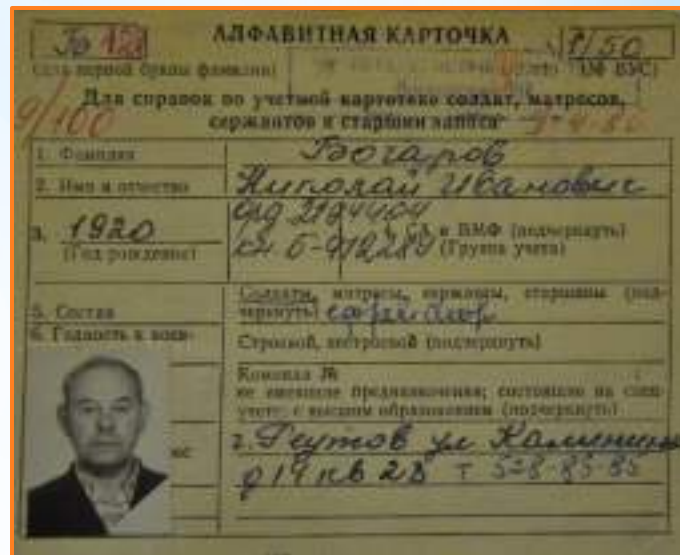 Бо 128 АЛФАВИТНАЯ КАРТОЧКА 1/50
(две первой буквы фамилии) (№ ВУС)
9/100
Для справок по учетной картотеке солдат, матросов,
сержантов и старшин запаса
1. Фамилия Богаров
2. Имя и отчество Николай Иванович
3. 1920
(Год рождения)
4. СА и ВМФ (подчеркнуть)
(Группа учета)
5. Состав
Солдаты, матросы, сержанты, старшины (под-
черкнуть)
6. Годность к воен-
Строевой, нестроевой (подчеркнуть)
Команда №
не имеющие предназначения; состоящие на спец-
учете; с высшим образованием (подчеркнуть)
г. Реутов ул Калинина
д 14 кв 23 т 528-85-85